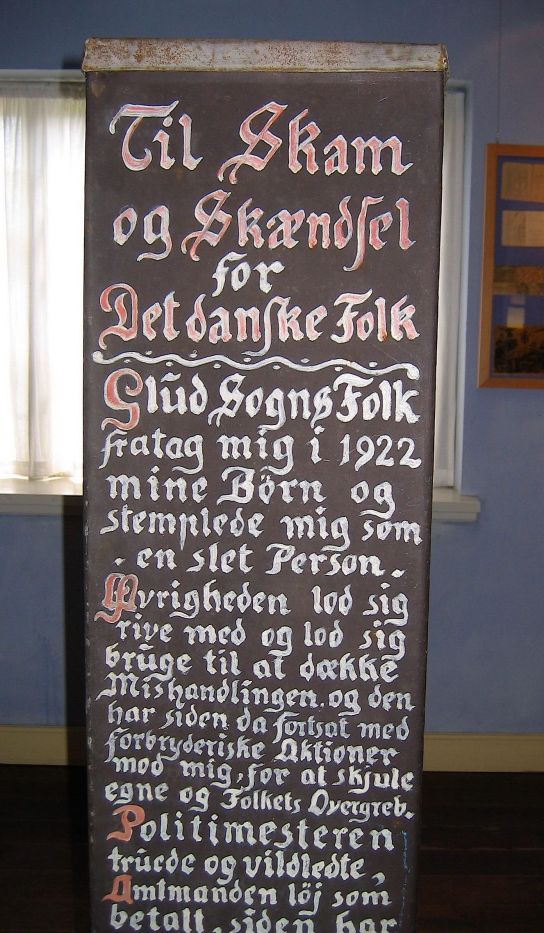 Til Skam
og Skændsel
for
Det danske Folk
Glud Sogns Folk
fratag mig i 1922
mine Børn og
stemplede mig som
en slet Person.
Øvrigheden lod sig
rive med og lod sig
bruge til at dække
Mishandlingen. og den
har siden da fortsat med
forbryderiske Aktioner
mod mig, for at skjule
egne og Folkets Overgreb.
Politimesteren
truede og vildledte,
Amtmanden löj som
betalt, siden har